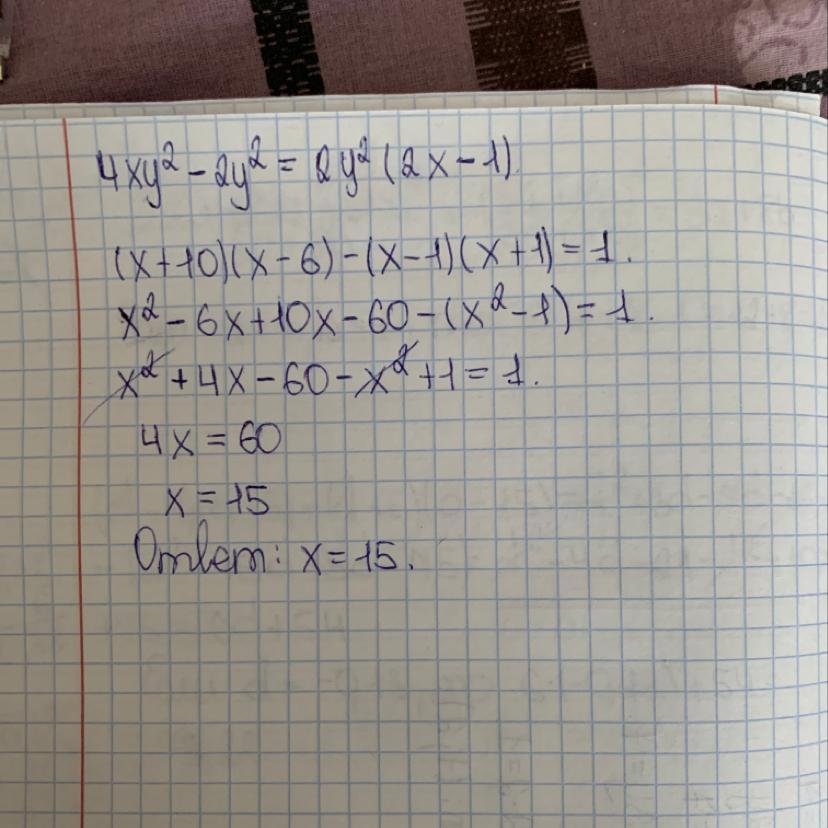 4xy² - 2y² = 2y² (2x - 1)
(x+10)(x-6)-(x-1)(x+1)=1.
x² - 6x+10x-60-(x²-1)=1.
x² + 4x - 60 - x² + 1 = 1.
4x = 60
x = 15
Ответ: x = 15.